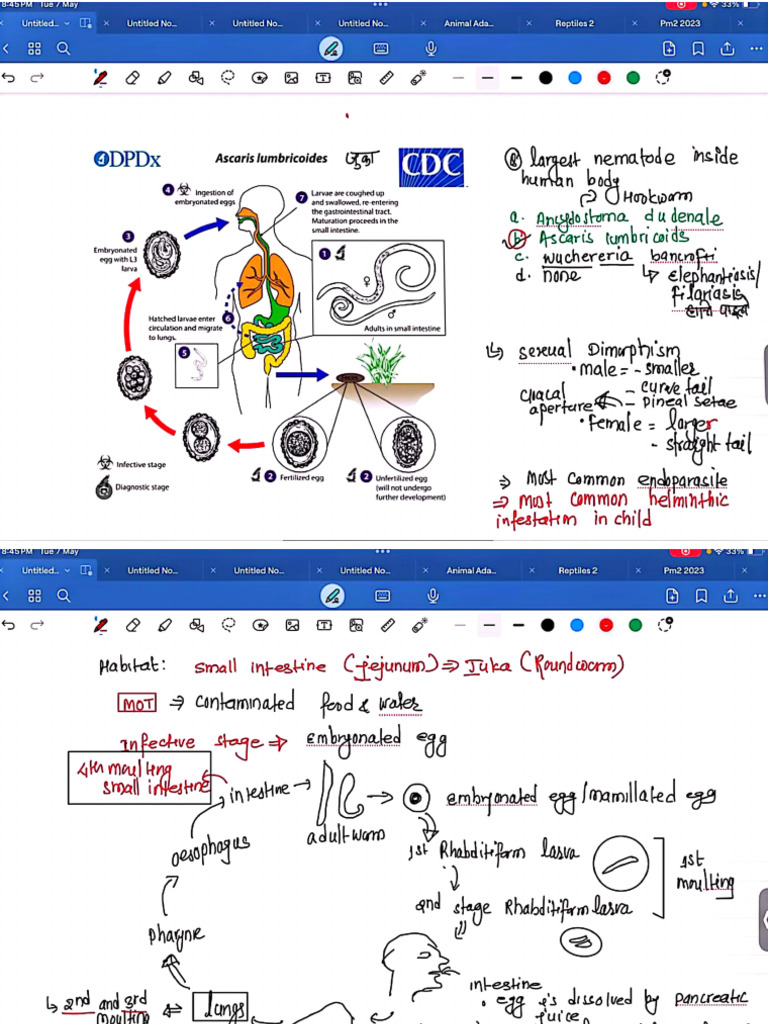 8:45 PM Tue 7 May
33%
Untitled...
Untitled No...
Untitled No...
Untitled No...
Animal Ada...
Reptiles 2
Pm2 2023
DPDx
Ascaris lumbricoides
जुका
CDC
4 Ingestion of
embryonated eggs
7 Larvae are coughed up
and swallowed, re-entering
the gastrointestinal tract.
Maturation proceeds in the
small intestine.
3
Embryonated
egg with L3
larva
1
♀
♂
Adults in small intestine
Hatched larvae enter
circulation and migrate
to lungs.
6
5
2 Fertilized egg
2 Unfertilized egg
(will not undergo
further development)
Infective stage
Diagnostic stage
largest nematode inside
human body
Hookworm
a. Ancylostoma dudenale
b. Ascaris lumbricoids
c. wuchereria bancrofti
d. none
↳ elephantiosis/
filariasis
↳ sexual Dimorphism
• male = - smaller
- curve tail
- Pineal setae
Cloacal
aperture
• Female = larger
- straight tail
⇒ Most Common endoparasite
⇒ most common helminthic
infestation in child
8:45 PM Tue 7 May
33%
Untitled...
Untitled No...
Untitled No...
Untitled No...
Animal Ada...
Reptiles 2
Pm2 2023
Habitat: small intestine (jejunum) ⇒ Juka (Roundworm)
MOT ⇒ contaminated food & water
Infective stage ⇒ embryonated egg
4th moulting
small intestine
intestine →
adult worm
→ embryonated egg/mamillated egg
oesophagus
1st Rhabditiform larva
1st
moulting
2nd stage Rhabditiform larva
pharynx
intestine
• egg is dissolved by pancreatic
juice
↳ 2nd and 3rd
moulting
⇐ Lungs